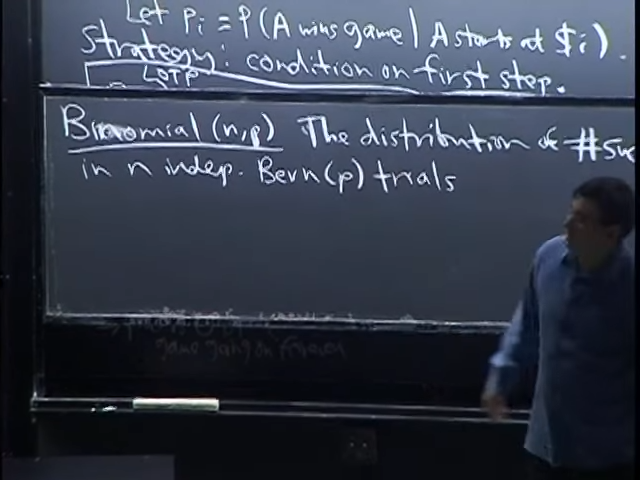 Let pᵢ = P(A wins game | A starts at $i).
Strategy: condition on first step.
LOTP
Binomial (n,p) The distribution of #suc
in n indep. Bern(p) trials
game going on forever